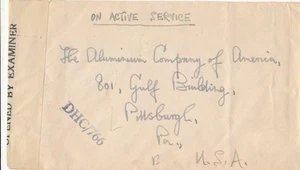 ON ACTIVE SERVICE
The Aluminium Company of America,
801, Gulf Building,
Pittsburgh,
Pa.,
U.S.A.
DHC/766
OPENED BY EXAMINER